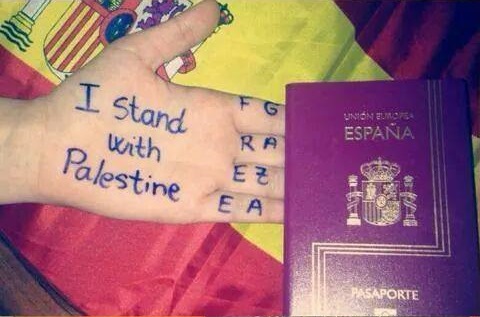 I stand
with
Palestine
F G
R A
E Z
E A
UNIÓN EUROPEA
ESPAÑA
PASAPORTE